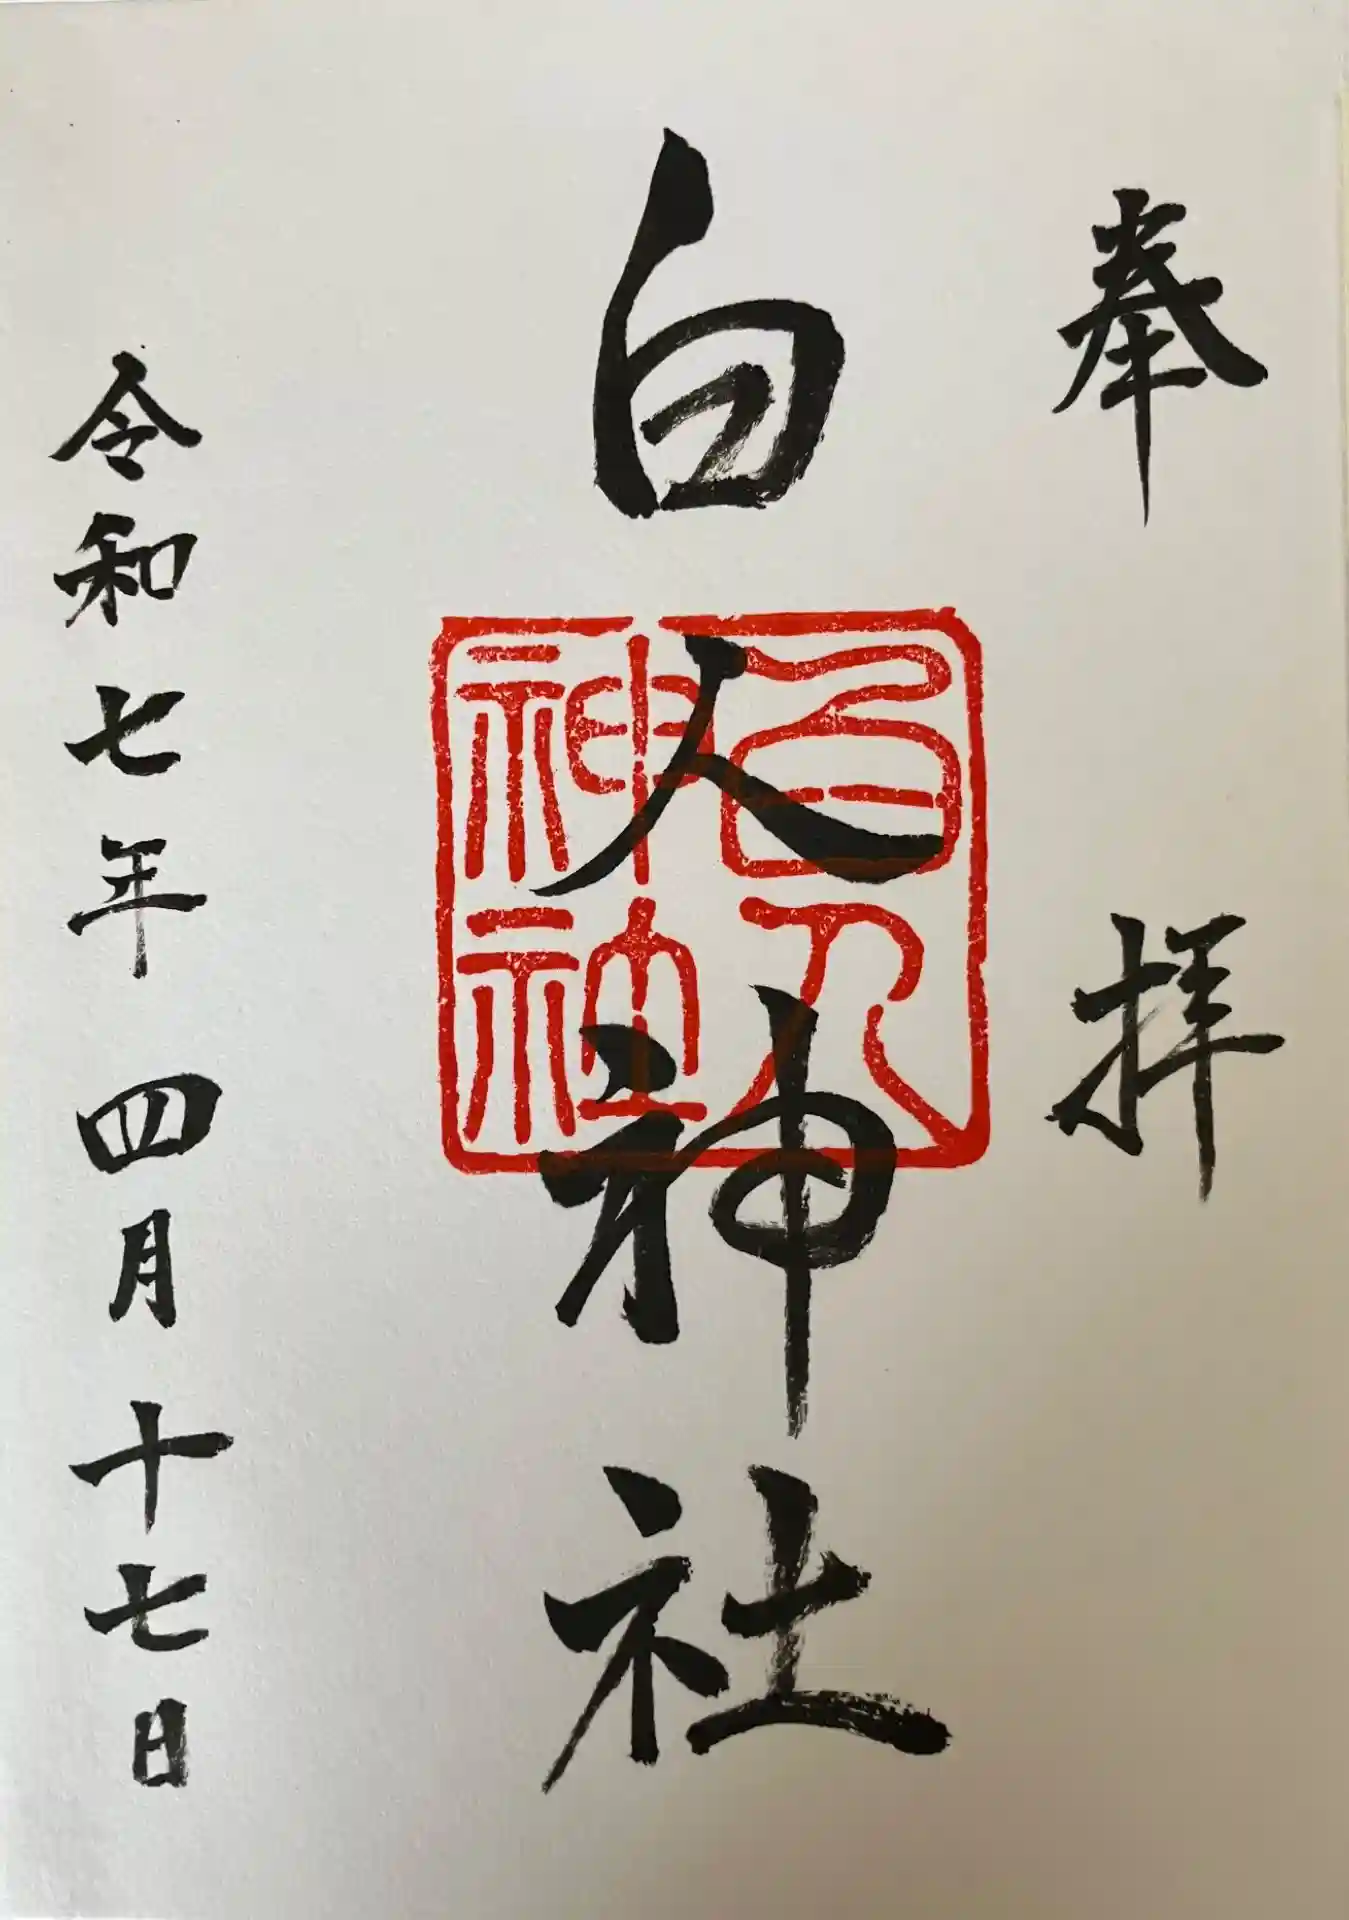 奉拝
白人神社
白人神社
令和七年四月十七日